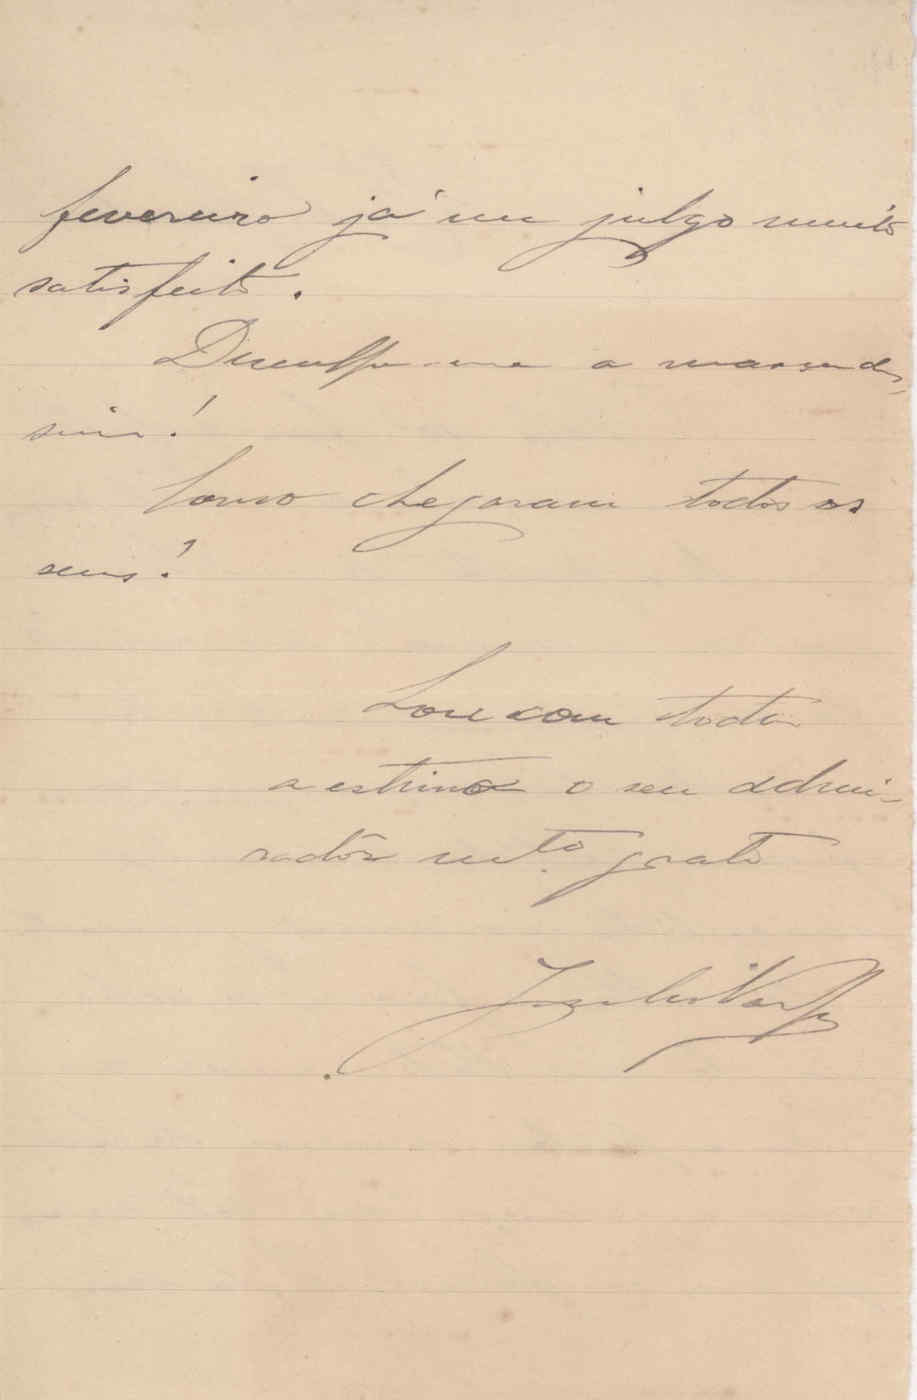 fevereiro já me julgo muito
satisfeito.
Desculpe-me a massada,
sim!
Como chegaram todos os
seus?
Sou com toda
a estima o seu admi-
radôr mto. grato